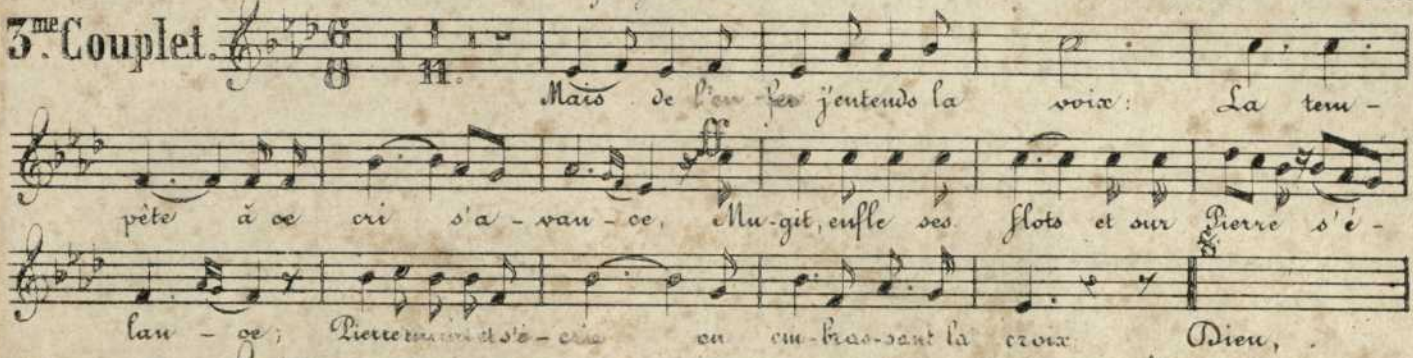 3.me Couplet. 6/8 11.
Mais de l'en-fer j'entends la voix: La tem-
ff
pête à ce cri s'a-van-ce, Mu-git, enfle ses flots et sur Pierre s'é-
lan-ce; Pierre s'é-crie en em-bras-sant la croix Dieu,